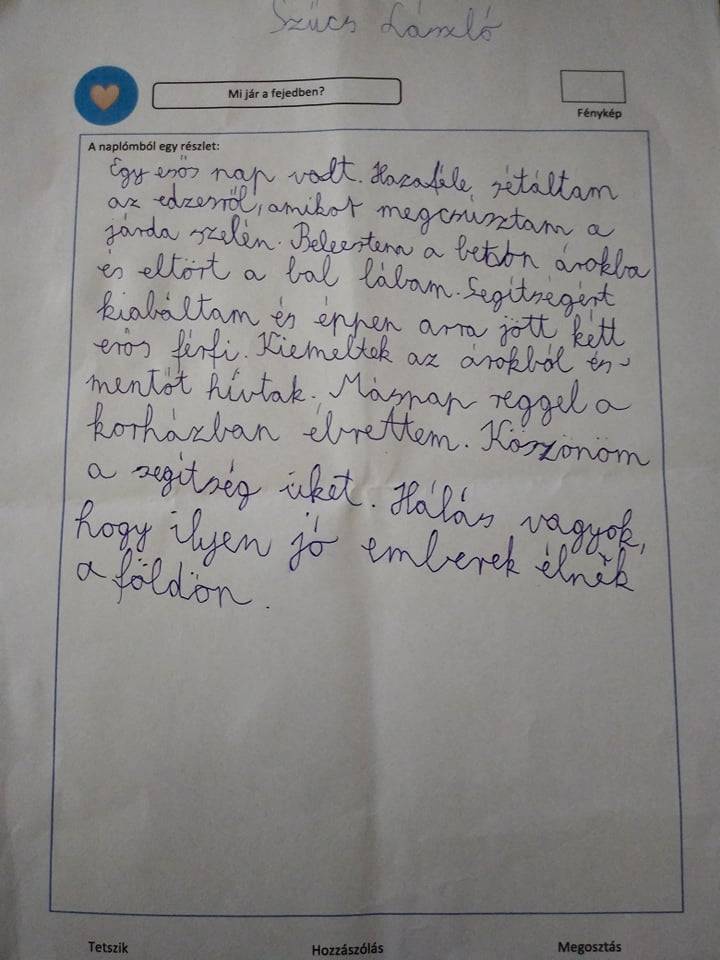 Szűcs László
Mi jár a fejedben?
Fénykép
A naplómból egy részlet:
Egy esős nap vodt. Hazaféle sétáltam
az edzesről, amikot megcsúsztam a
járda szelén. Beleestem a beton árokba
és eltört a bal lábam. Segítségért
kiabáltam és éppen arra jött kétt
erős férfi. Kiemeltek az árokból és
mentőt hívtak. Másnap reggel a
korházban ébrettem. Köszönöm
a segítség üket. Hálás vagyok,
hogy ilyen jó emberek élnek
a földön.
Tetszik
Hozzászólás
Megosztás